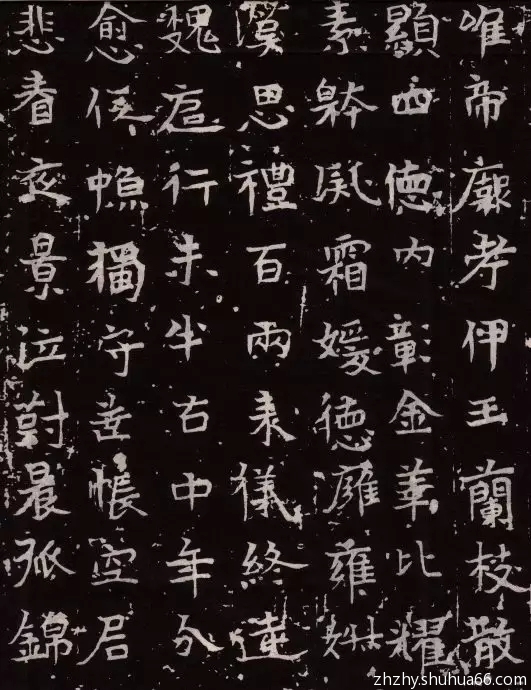 唯帝考伊王蘭枝散
顯西德內彰金華比耀
素躰凝霜媛德灉雍
漢思禮百兩未儀終遠
魏行未半古中年分
愈獨守帳空居
悲春夜景泣對晨孤錦
zhzhy.shuhua66.com